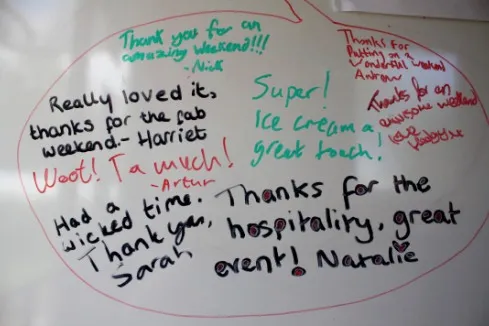 Thank you for an
amazing weekend!!!
-Nick
Thanks For
Putting on a
Wonderful weekend
Andrew
Really loved it,
thanks for the fab
weekend.- Harriet
Super!
Ice cream a
great touch!
Thanks for an
awesome weekend
love
Woot! Ta much!
-Artur
Had a
wicked time.
Thank you,
Sarah
Thanks for the
hospitality, great
event! Natalie